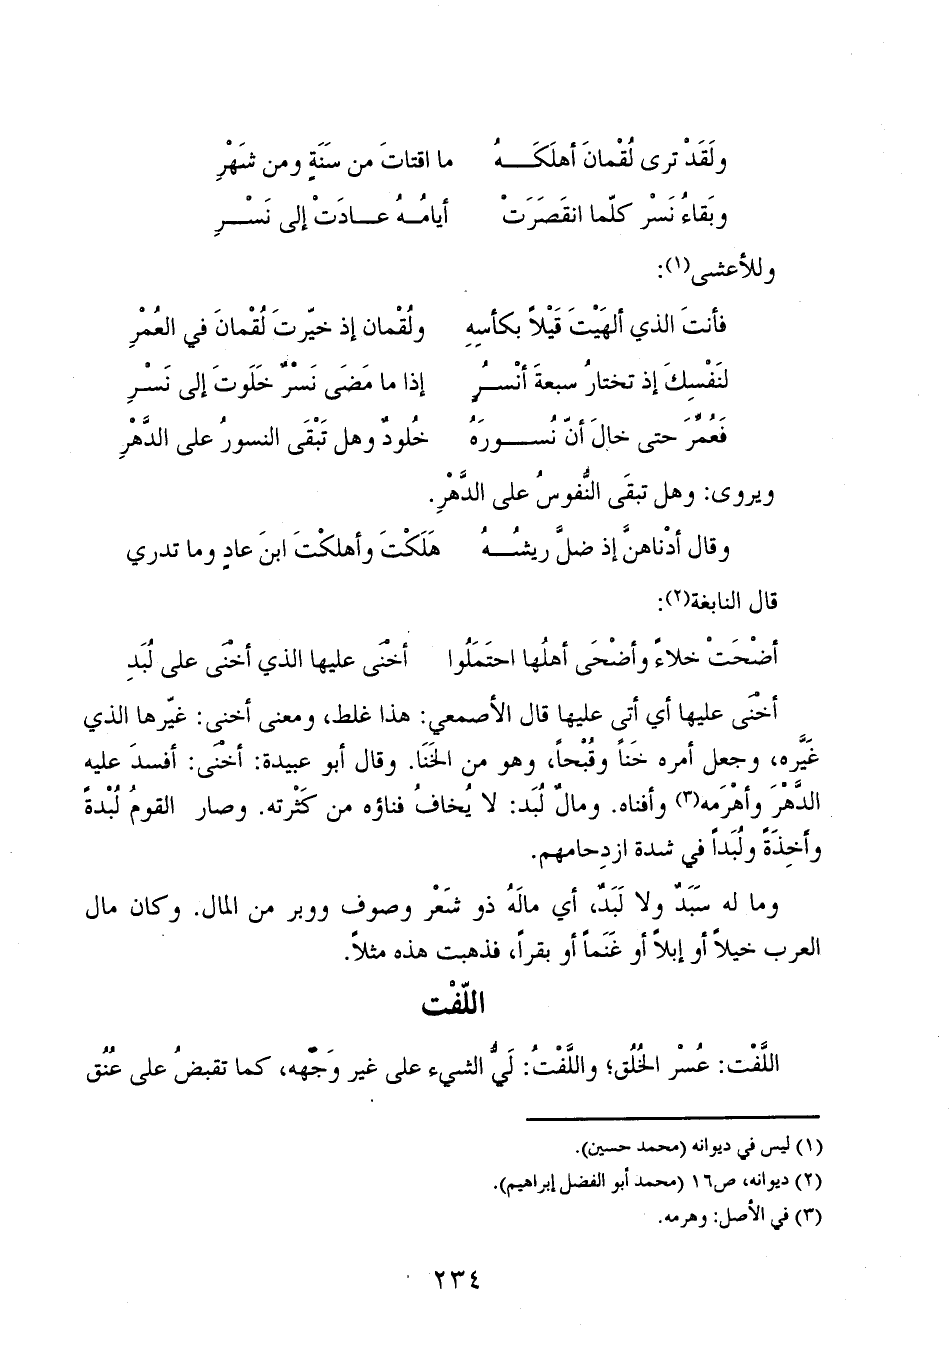 ولَقَدْ ترى لُقْمانَ أهلَكَـــهُ ما اقتاتَ من سَنَةٍ ومن شَهْرِ
وبَقاءُ نَسْر كلّما انقَصَرَتْ أيامُـهُ عـادَتْ إلى نَسْـرِ
وللأعشى(١):
فأنتَ الذي ألهَيْتَ قَيْلاً بكأسِهِ ولُقْمان إذ خيّرتَ لُقْمانَ في العُمْرِ
لنَفْسِكَ إذ تختارُ سبعةَ أنْسـُرٍ إذا ما مَضَى نَسْرٌ خَلَوتَ إلى نَسْـرِ
فَعُمِّرَ حتى خالَ أنّ نُســورَهُ خُلودٌ وهل تَبْقَى النسورُ على الدَّهْرِ
ويروى: وهل تبقى النُّفوسُ على الدَّهْرِ.
وقال أدْناهنَّ إذ ضلَّ ريشُـهُ هَلَكْتَ وأهلكْتَ ابنَ عادٍ وما تدري
قال النابغة(٢):
أضْحَتْ خلاءً وأضْحَى أهلُها احتَمَلُوا أخْنَى عليها الذي أخْنَى على لُبَدِ
أخْنَى عليها أي أتى عليها قال الأصمعي: هذا غلط، ومعنى أخنى: غيّرها الذي
غَيَّره، وجعل أمره خَناً وقُبْحاً، وهو من الخَنَا. وقال أبو عبيدة: أخْنَى: أفسدَ عليه
الدَّهْرَ وأهْرَمه(٣) وأفناه. ومالٌ لُبَد: لا يُخافُ فناؤه من كَثْرته. وصار القومُ لُبْدةً
وأخِذَةً ولُبَداً في شدة ازدحامهم.
وما له سَبَدٌ ولا لَبَدٌ، أي مالَهُ ذو شَعْر وصوف ووبر من المال. وكان مال
العرب خيلاً أو إبلاً أو غَنَماً أو بقراً، فذهبت هذه مثلاً.
اللّفْت
اللَّفْت: عُسْر الخُلُق؛ واللَّفْتُ: لَيُّ الشيء على غير وَجْهه، كما تقبضُ على عُنُق
(١) ليس في ديوانه (محمد حسين).
(٢) ديوانه، ص١٦ (محمد أبو الفضل إبراهيم).
(٣) في الأصل: وهرمه.
٢٣٤